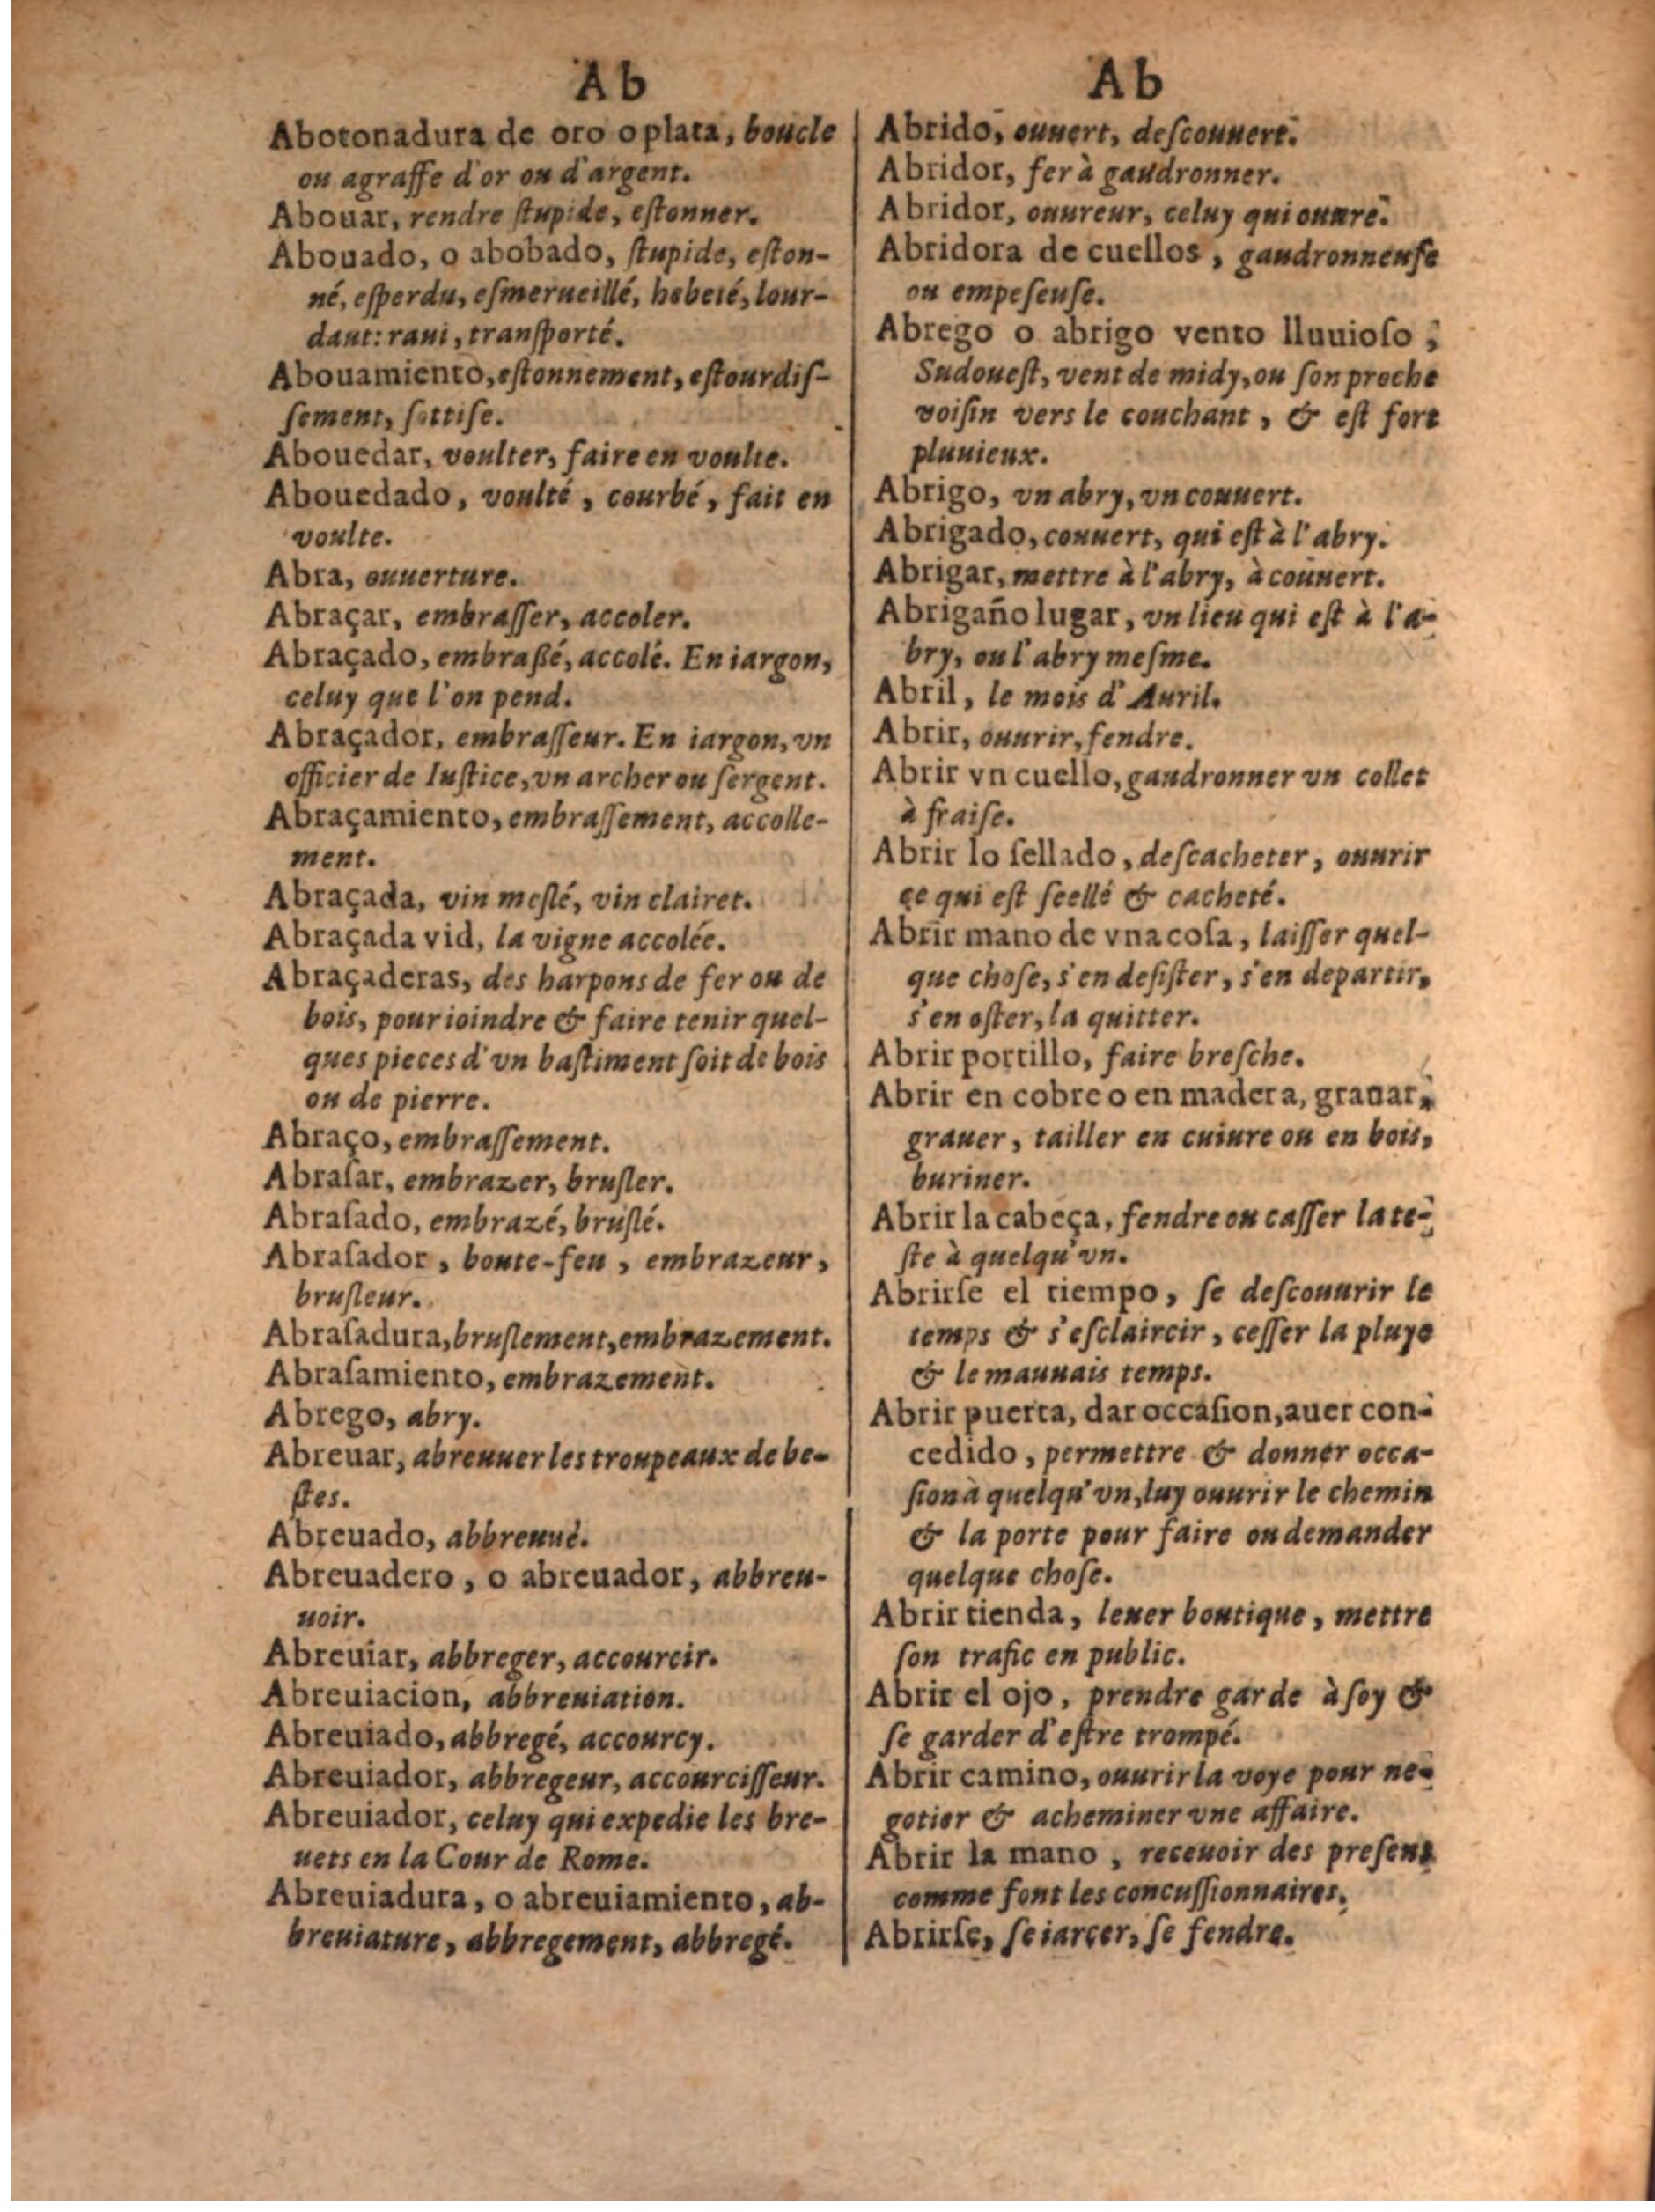 Ab
Abotonadura de oro o plata, boucle
ou agraffe d'or ou d'argent.
Abouar, rendre ſtupide, eſtonner.
Abouado, o abobado, ſtupide, eſton-
né, eſperdu, eſmerueillé, hebeté, lour-
daut: raui, tranſporté.
Abouamiento, eſtonnement, eſtourdiſ-
ſement, ſottiſe.
Abouedar, voulter, faire en voulte.
Abouedado, voulté, courbé, fait en
voulte.
Abra, ouuerture.
Abraçar, embraſſer, accoler.
Abraçado, embraßé, accolé. En iargon,
celuy que l'on pend.
Abraçador, embraſſeur. En iargon, vn
officier de Iuſtice, vn archer ou ſergent.
Abraçamiento, embraſſement, accolle-
ment.
Abraçada, vin meſlé, vin clairet.
Abraçada vid, la vigne accolée.
Abraçaderas, des harpons de fer ou de
bois, pour ioindre & faire tenir quel-
ques pieces d'vn baſtiment ſoit de bois
ou de pierre.
Abraço, embraſſement.
Abraſar, embrazer, bruſler.
Abraſado, embrazé, bruſlé.
Abraſador, boute-feu, embrazeur,
bruſleur.
Abraſadura, bruſlement, embrazement.
Abraſamiento, embrazement.
Abrego, abry.
Abreuar, abreuuer les troupeaux de be-
ſtes.
Abreuado, abbreuué.
Abreuadero, o abreuador, abbreu-
uoir.
Abreuiar, abbreger, accourcir.
Abreuiacion, abbreuiation.
Abreuiado, abbregé, accourcy.
Abreuiador, abbregeur, accourciſſeur.
Abreuiador, celuy qui expedie les bre-
uets en la Cour de Rome.
Abreuiadura, o abreuiamiento, ab-
breuiature, abbregement, abbregé.
Ab
Abrido, ouuert, deſcouuert.
Abridor, fer à gaudronner.
Abridor, ouureur, celuy qui ouure.
Abridora de cuellos, gaudronneuſe
ou empeſeuſe.
Abrego o abrigo vento lluuioſo,
Sudoueſt, vent de midy, ou ſon proche
voiſin vers le couchant, & eſt fort
pluuieux.
Abrigo, vn abry, vn couuert.
Abrigado, couuert, qui eſt à l'abry.
Abrigar, mettre à l'abry, à couuert.
Abrigaño lugar, vn lieu qui eſt à l'a-
bry, ou l'abry meſme.
Abril, le mois d'Auril.
Abrir, ouurir, fendre.
Abrir vn cuello, gaudronner vn collet
à fraiſe.
Abrir lo ſellado, deſcacheter, ouurir
ce qui eſt ſeellé & cacheté.
Abrir mano de vna coſa, laiſſer quel-
que choſe, s'en deſiſter, s'en departir,
s'en oſter, la quitter.
Abrir portillo, faire breſche.
Abrir en cobre o en madera, grauar,
grauer, tailler en cuiure ou en bois,
buriner.
Abrir la cabeça, fendre ou caſſer la te-
ſte à quelqu'vn.
Abrirſe el tiempo, ſe deſcouurir le
temps & s'eſclaircir, ceſſer la pluye
& le mauuais temps.
Abrir puerta, dar occaſion, auer con-
cedido, permettre & donner occa-
ſion à quelqu'vn, luy ouurir le chemin
& la porte pour faire ou demander
quelque choſe.
Abrir tienda, leuer boutique, mettre
ſon trafic en public.
Abrir el ojo, prendre garde à ſoy &
ſe garder d'eſtre trompé.
Abrir camino, ouurir la voye pour ne-
gotier & acheminer vne affaire.
Abrir la mano, receuoir des preſens
comme font les concuſſionnaires.
Abrirſe, ſe iarcer, ſe fendre.